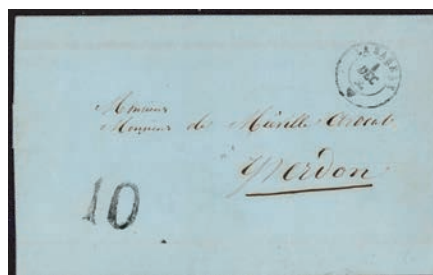 LA SARRAZ
1
DEC
Monsieur
Monsieur de Miéville Avocat
Yverdon
10